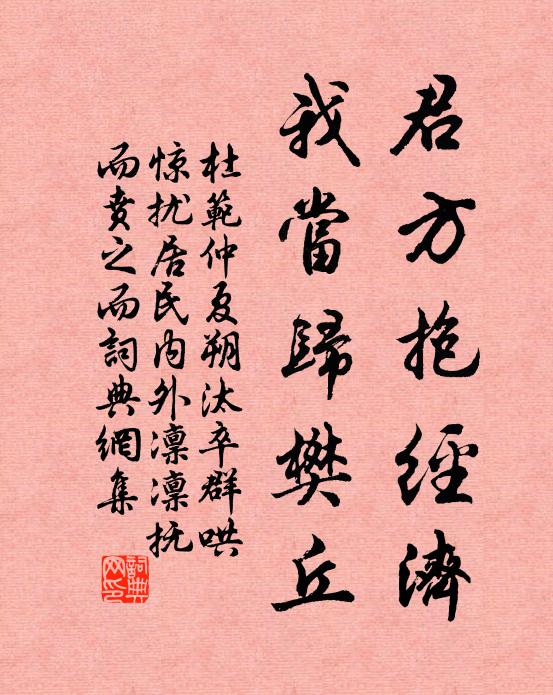 君方抱經濟
我當歸樊丘
杜範仲夏朔汰卒群哄
惊扰居民内外凛凛抚
而賁之而詞典網集
詞典网印